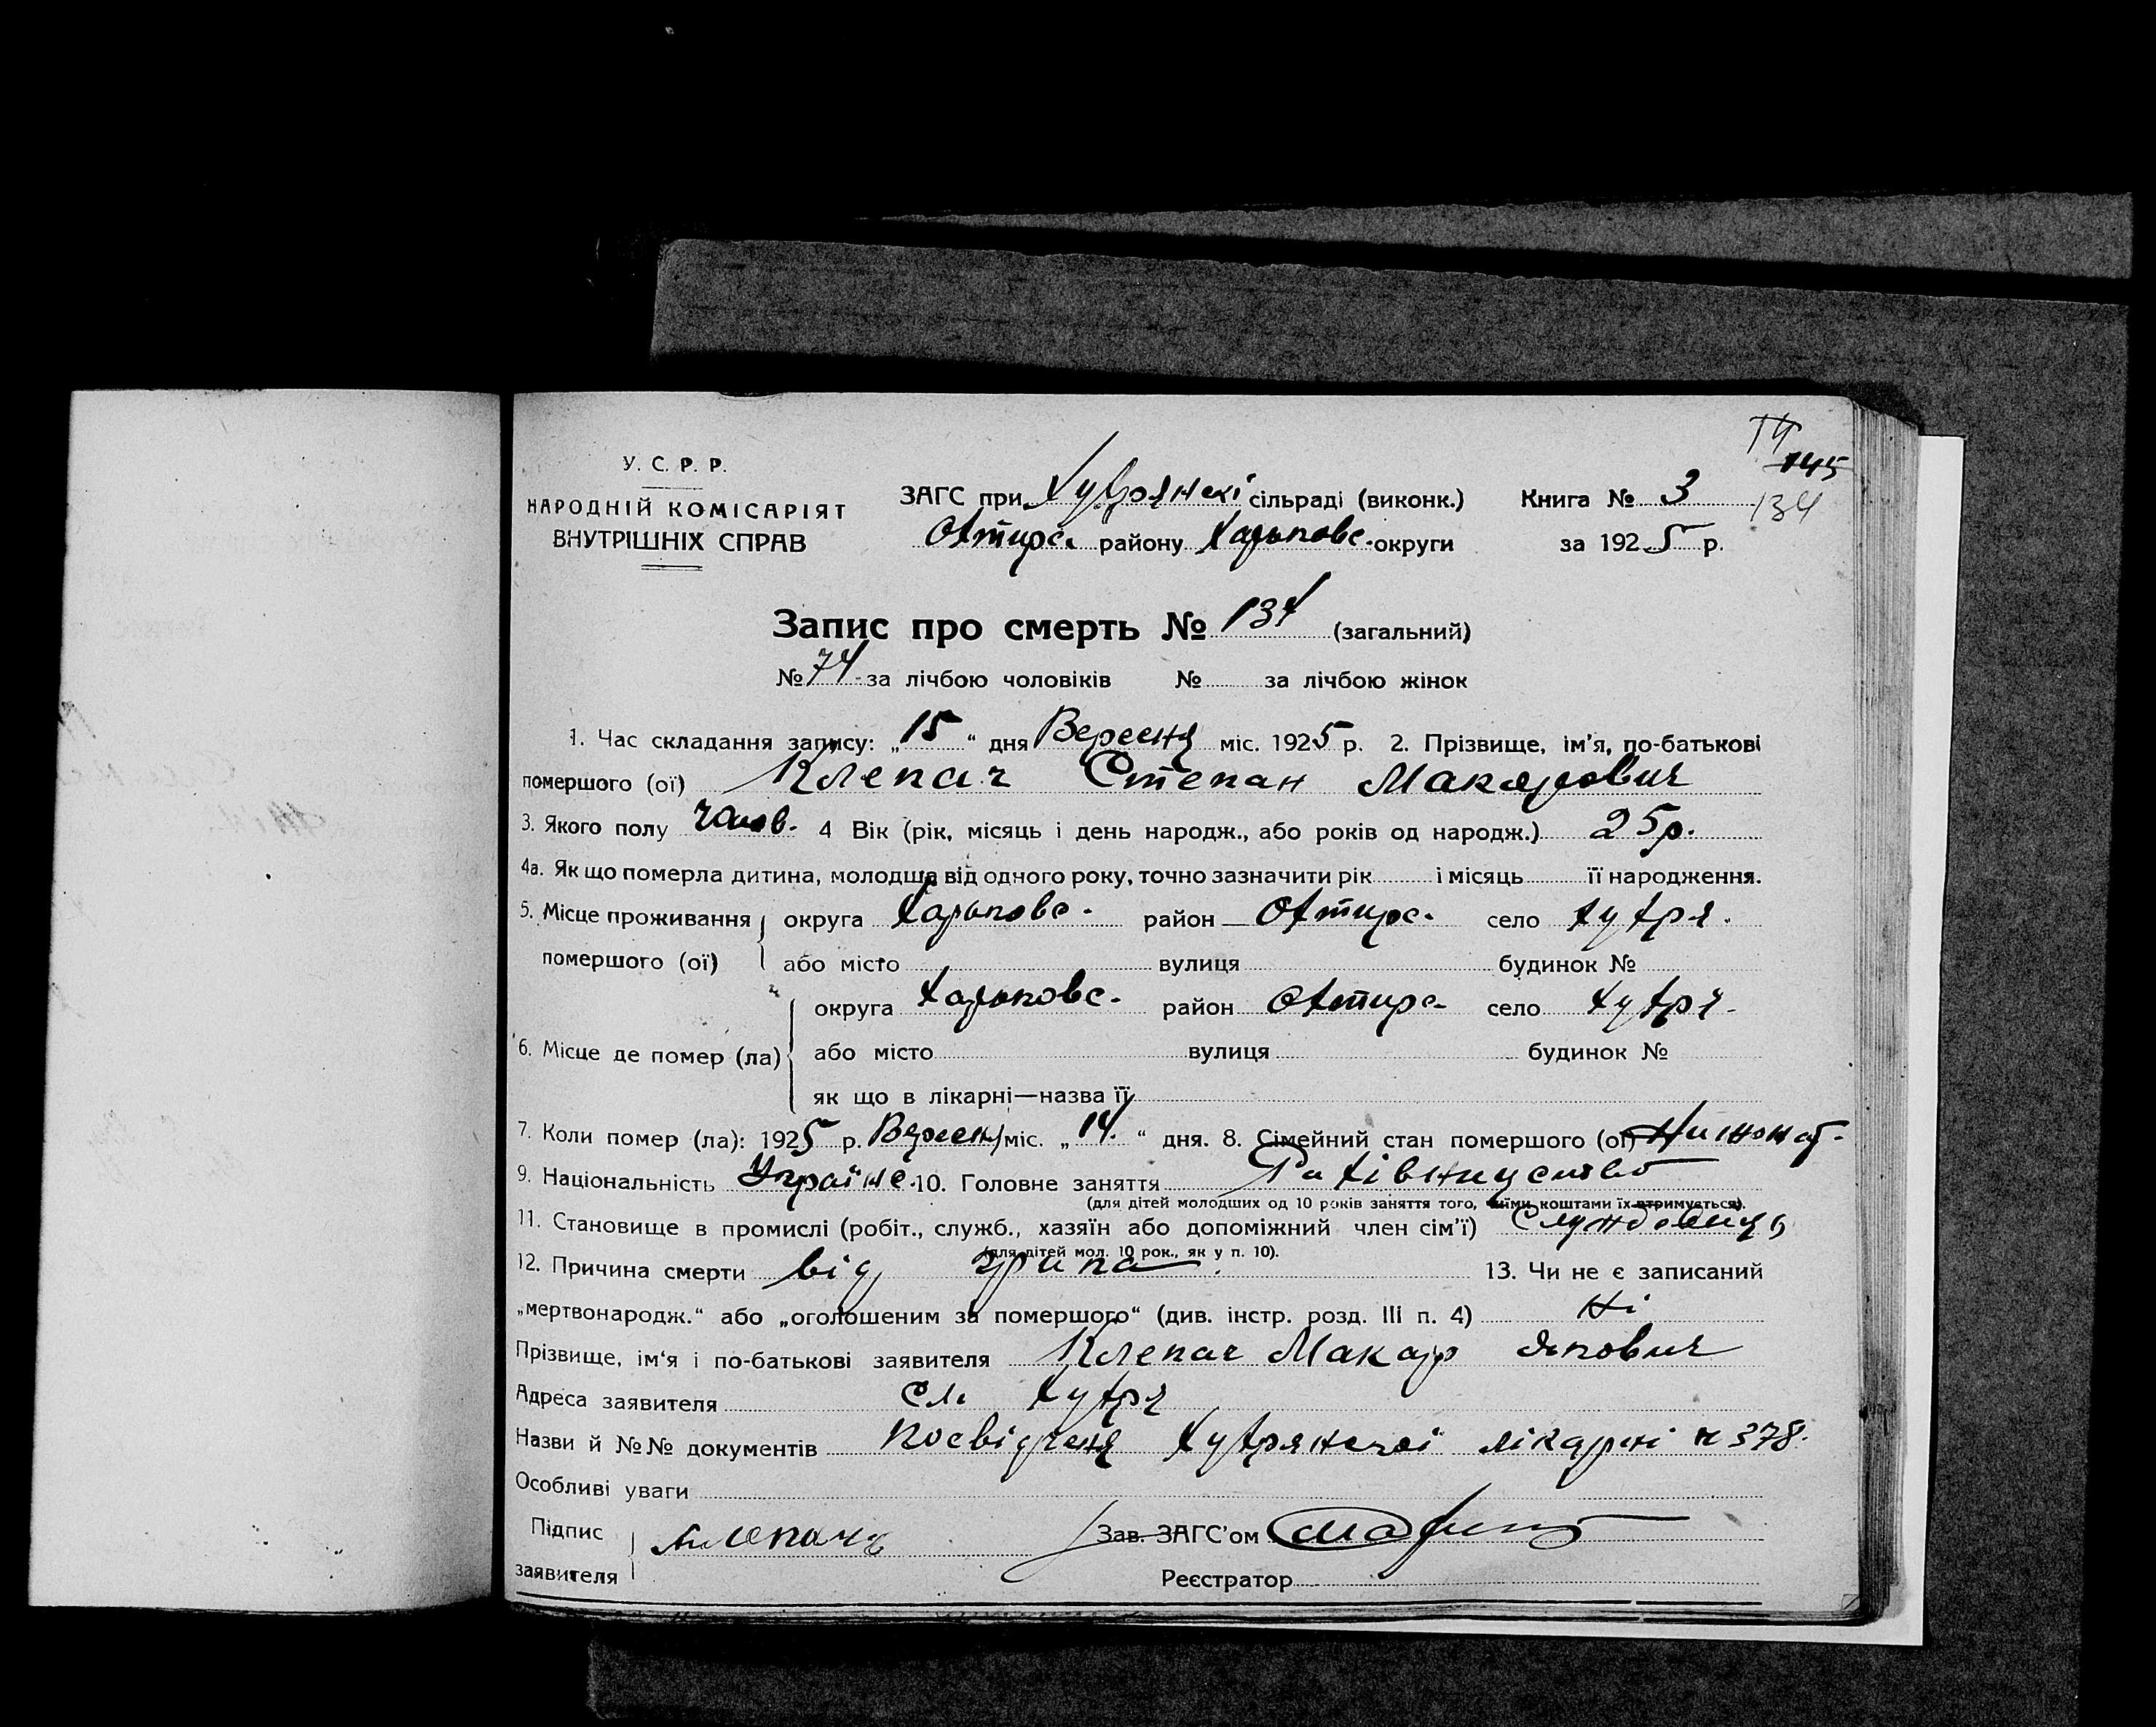 У. С. Р. Р.
НАРОДНІЙ КОМІСАРІЯТ
ВНУТРІШНІХ СПРАВ
ЗАГС при сільраді (виконк.)
району Харьковс. округи
Книга № 3
за 1925 р.
145
134
Запис про смерть № 134 (загальний)
№ 74 за лічбою чоловіків № за лічбою жінок
1. Час складання запису: „15“ дня Вересня міс. 1925 р. 2. Прізвище, ім'я, по-батькові
помершого (ої) Клепач Степан Макарович
3. Якого полу чолов. 4 Вік (рік, місяць і день народж., або років од народж.) 25 р.
4а. Як що померла дитина, молодша від одного року, точно зазначити рік і місяць її народження.
5. Місце проживання округа Харьковс. район село
помершого (ої) або місто вулиця будинок №
округа Харьковс. район село
6. Місце де помер (ла) або місто вулиця будинок №
як що в лікарні—назва її
7. Коли помер (ла): 1925 р. Вересн міс. „14.“ дня. 8. Сімейний стан помершого (ої)
9. Національність Україне. 10. Головне заняття
(для дітей молодших од 10 років заняття того, чиїми коштами їх втримується).
11. Становище в промислі (робіт., служб., хазяїн або допоміжний член сім'ї)
(для дітей мол. 10 рок., як у п. 10).
12. Причина смерти від грипа. 13. Чи не є записаний
„мертвонародж.“ або „оголошеним за помершого“ (див. інстр. розд. III п. 4) Ні
Прізвище, ім'я і по-батькові заявителя Клепач Макар
Адреса заявителя сл.
Назви й №№ документів лікарні № 378.
Особливі уваги
Підпис
заявителя
Клепачъ
Зав. ЗАГС'ом
Реєстратор